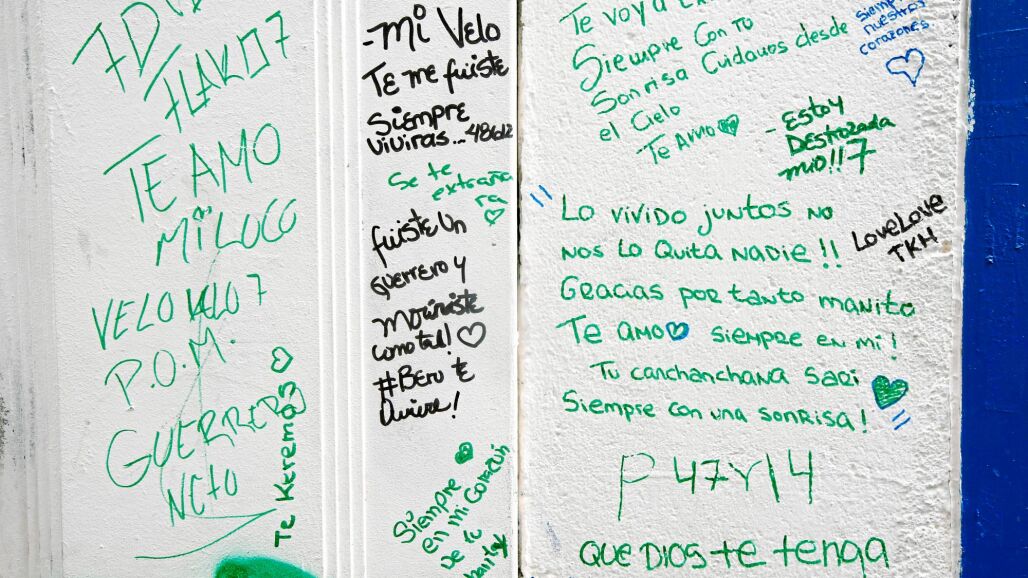 TE AMO
MI LUCO
VELO VELO 7
P.O.M.
GUERRERO
NCTO
Te Keremos
-Mi Velo
Te me fuiste
Siempre
viviras...
Se te
extraña
ra
fuiste un
guerrero y
como tal!
#Beru te
Siempre
en mi Corazon
De tu
Te voy a
Siempre Con tu
Sonrisa Cuidanos desde
el Cielo
Te Amo
Siempre
nuestros
corazones
- Estoy
Destrozada
mio!! 7
LoveLove
TKM
Lo vivido juntos no
nos lo quita nadie!!
Gracias por tanto manito
Te amo siempre en mi!
Tu canchanchana sari
Siempre con una sonrisa!
P 47Y14
Que Dios te tenga